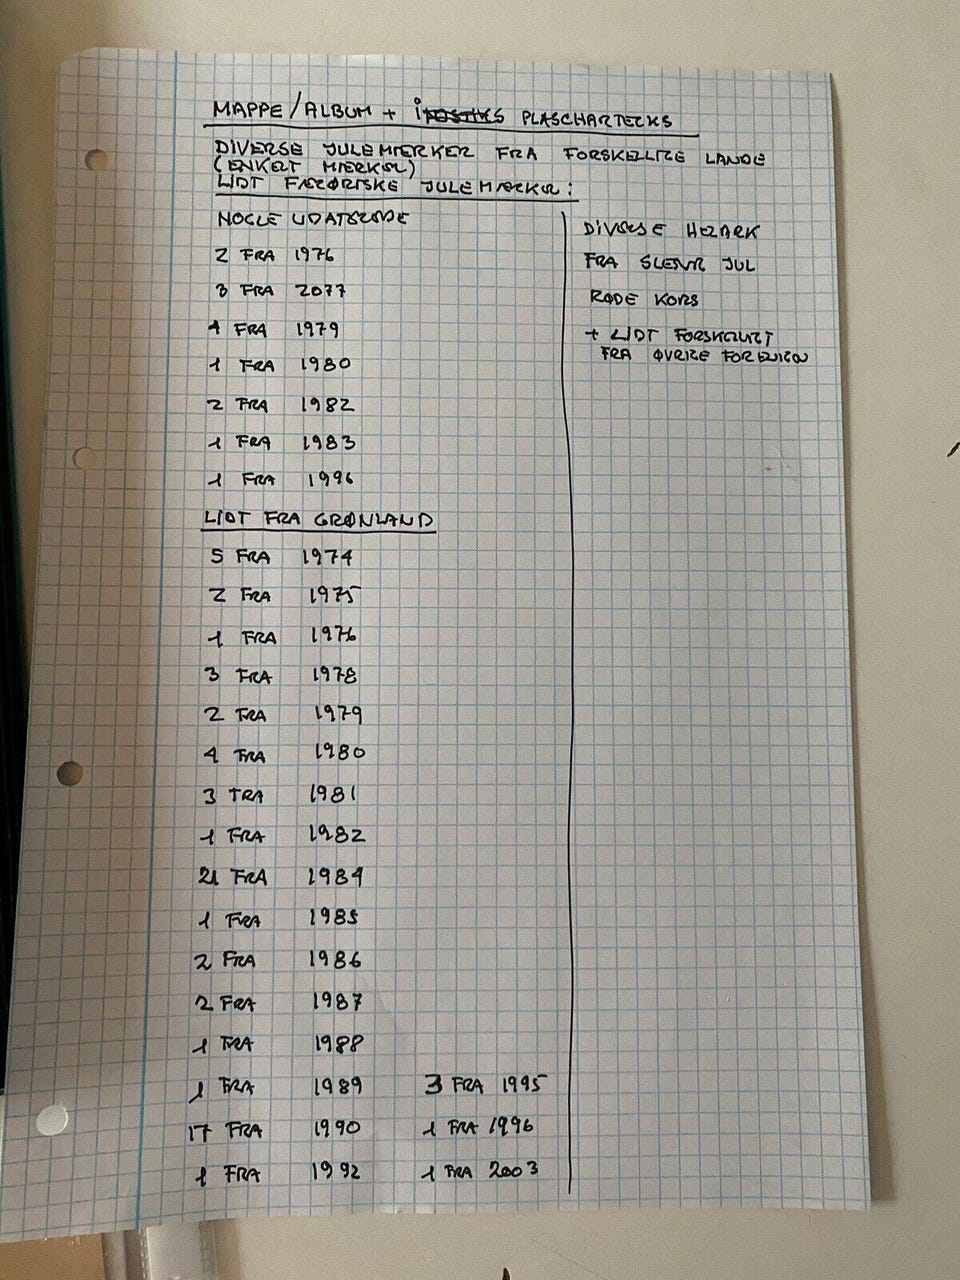 MAPPE/ALBUM + PLASCHARTECKS
DIVERSE JULEMÆRKER FRA FORSKELLIGE LANDE
(ENKELT MÆRKER)
LIDT FÆRØRISKE JULEMÆRKER:
NOGLE UDATEREDE
2 FRA 1976
3 FRA 2077
4 FRA 1979
1 FRA 1980
2 FRA 1982
1 FRA 1983
1 FRA 1996
LIDT FRA GRØNLAND
5 FRA 1974
2 FRA 1975
1 FRA 1976
3 FRA 1978
2 FRA 1979
4 FRA 1980
3 FRA 1981
1 FRA 1982
21 FRA 1984
1 FRA 1985
2 FRA 1986
2 FRA 1987
1 FRA 1988
1 FRA 1989
17 FRA 1990
1 FRA 1992
3 FRA 1995
1 FRA 1996
1 FRA 2003
DIVERSE HELARK
FRA JUL
RØDE KORS
+ LIDT FORSKELLIGT
FRA ØVRIGE